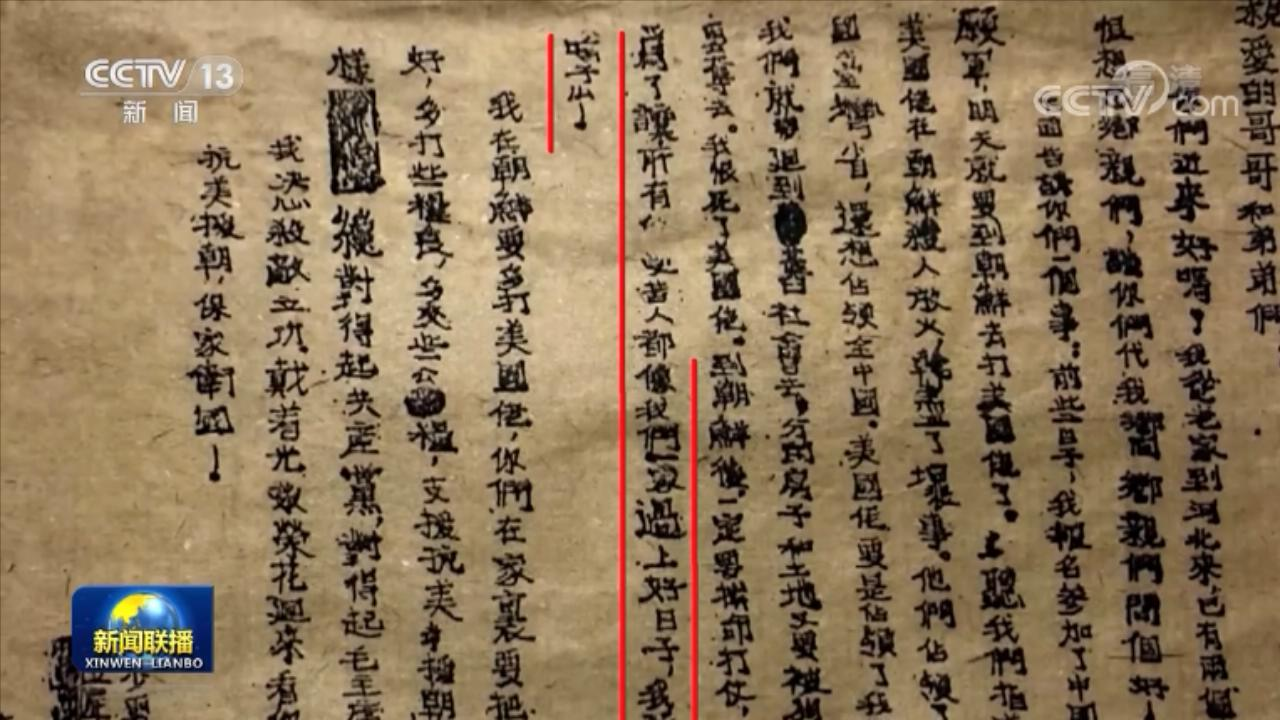 CCTV 13
新闻
CCTV.com
高清
爱的哥哥和弟弟們
們近来好嗎？我從老家到河北来已有兩個
但想鄉親們，請你們代我向鄉親們問個好
面告訴你們一個事：前些日子，我報名参加了中國
願軍，明天就要到朝鮮去打美國佬了。上聽我們指
美國佬在朝鮮殺人放火，幹盡了壞事。他們佔領
國台灣省，還想佔領全中國。美國佬要是佔領了我
我們就要退到舊社會去，分的房子和土地又要被
去。我恨死了美國佬。到朝鮮後，一定要拚命打仗，
為了讓所有 苦人都像我們一家過上好日子，我
我在朝鮮要多打美國佬，你們在家裏要把
好，多打些糧食，多交些公糧，支援抗美援朝
樣 纔對得起共産黨，對得起毛主席
我决心殺敵立功，戴着光榮花廻来看你
抗美援朝，保家衛國！
新闻联播
XINWEN LIANBO